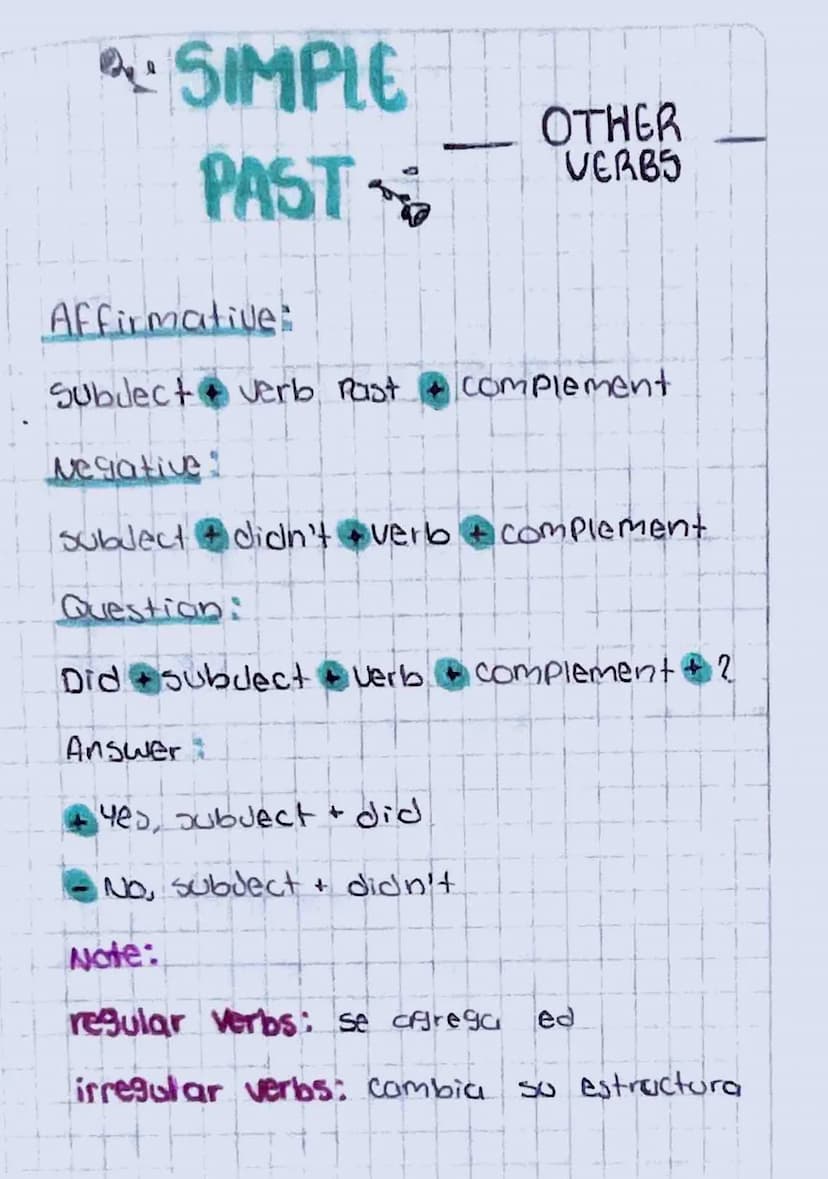 SIMPLE
PAST
OTHER
VERBS
Affirmative:
Subject + verb Past + complement
Negative:
subject + didn't + verb + complement
Question:
Did + subject + verb + complement + ?
Answer:
+ Yes, subject + did
- No, subject + didn't
Note:
regular verbs: se agrega ed
irregular verbs: cambia su estructura